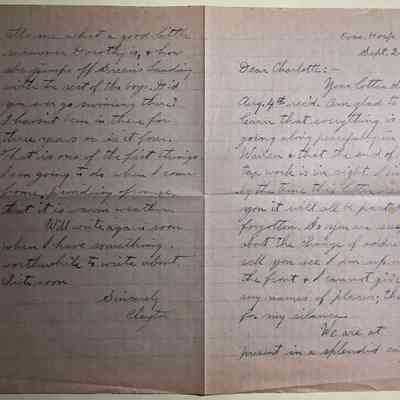 me what a good little
swimmer Dorothy is, & how
she jumps off Green's Landing
with the rest of the boys. Did
you ever go swimming there?
I haven't been in there for
three years or is it four.
That is one of the first things
I am going to do when I come
home, providing of course,
that it is warm weather.
Will write again soon
when I have something
worthwhile to write about.
Write soon
Sincerely
Clayton
Evac. Hosp
Sept. 2
Dear Charlotte:-
Your letter d
Aug. 4th rec'd. Am glad to
learn that everything is
going along peacefully in
Warren & that the end of
tax work is in sight. I
by the time this letter
you it will all be past &
forgotten. So you are
about the change of addre
well you see I am up n
the front & I cannot give
any names of places; the
for my silence.
We are at
present in a splendid ca